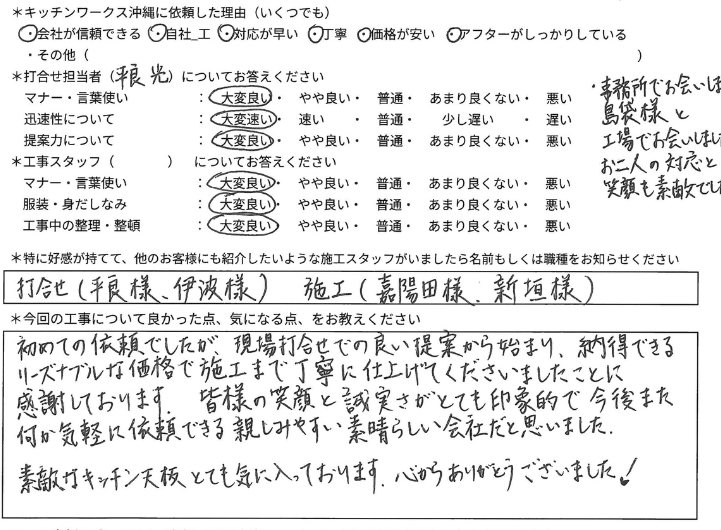 ＊キッチンワークス沖縄に依頼した理由（いくつでも）
・会社が信頼できる ・自社_工 ・対応が早い ・丁寧 ・価格が安い ・アフターがしっかりしている
・その他（ ）
＊打合せ担当者（平良 光）についてお答えください
マナー・言葉使い ：大変良い・ やや良い・ 普通・ あまり良くない・ 悪い
迅速性について ：大変速い・ 速い ・ 普通・ 少し遅い ・ 遅い
提案力について ：大変良い・ やや良い・ 普通・ あまり良くない・ 悪い
・事務所でお会いしま
島袋様と
工場でお会いしまし
お二人の対応と
笑顔も素敵でした
＊工事スタッフ（ ） についてお答えください
マナー・言葉使い ：大変良い・ やや良い・ 普通・ あまり良くない・ 悪い
服装・身だしなみ ：大変良い・ やや良い・ 普通・ あまり良くない・ 悪い
工事中の整理・整頓 ：大変良い・ やや良い・ 普通・ あまり良くない・ 悪い
＊特に好感が持てて、他のお客様にも紹介したいような施工スタッフがいましたら名前もしくは職種をお知らせください
打合せ（平良様、伊波様） 施工（嘉陽田様、新垣様）
＊今回の工事について良かった点、気になる点、をお教えください
初めての依頼でしたが、現場打合せでの良い提案から始まり、納得できる
リーズナブルな価格で施工まで丁寧に仕上げてくださいましたことに
感謝しております。皆様の笑顔と誠実さがとても印象的で今後また
何か気軽に依頼できる親しみやすい素晴らしい会社だと思いました。
素敵なキッチン天板とても気に入っております。心からありがとうございました！